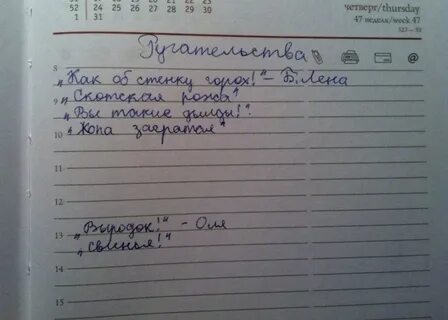 52 24 25 26 27 28 29 30
1 31
четверг/thursday
47 неделя/week 47
Ругательства
@
8 „Как об стенку горох!" – Б.Лена
9 „Скотская рожа"
„Вы такие дылды!"
10 „Жопа засратая"
11
12
13 „Выродок!" – Оля
14 „Свинья!"
15